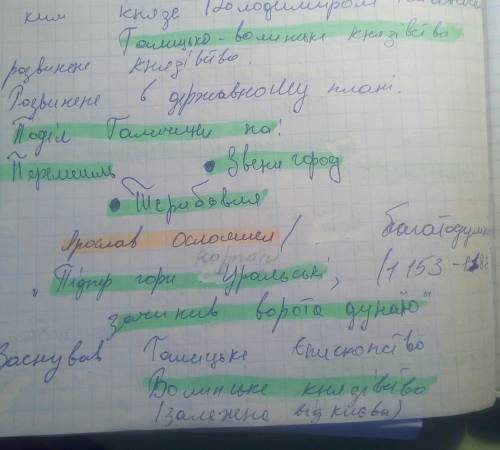 ким князе Володимиром
Галицько-волинське князівство
розвинене князівство.
Розвинене в державному плані.
Поділ Галичини на:
Перемишль • Звенигород
• Теребовля
Ярослав Осмомисл / багатодум
карпати
"Підпер гори Уральські, (1153-
зачинив ворота дунаю"
Заснував Галицьке Єпископство
Волинське князівство
(залежне від києва)